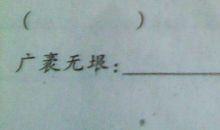 (      )
广袤无垠:______